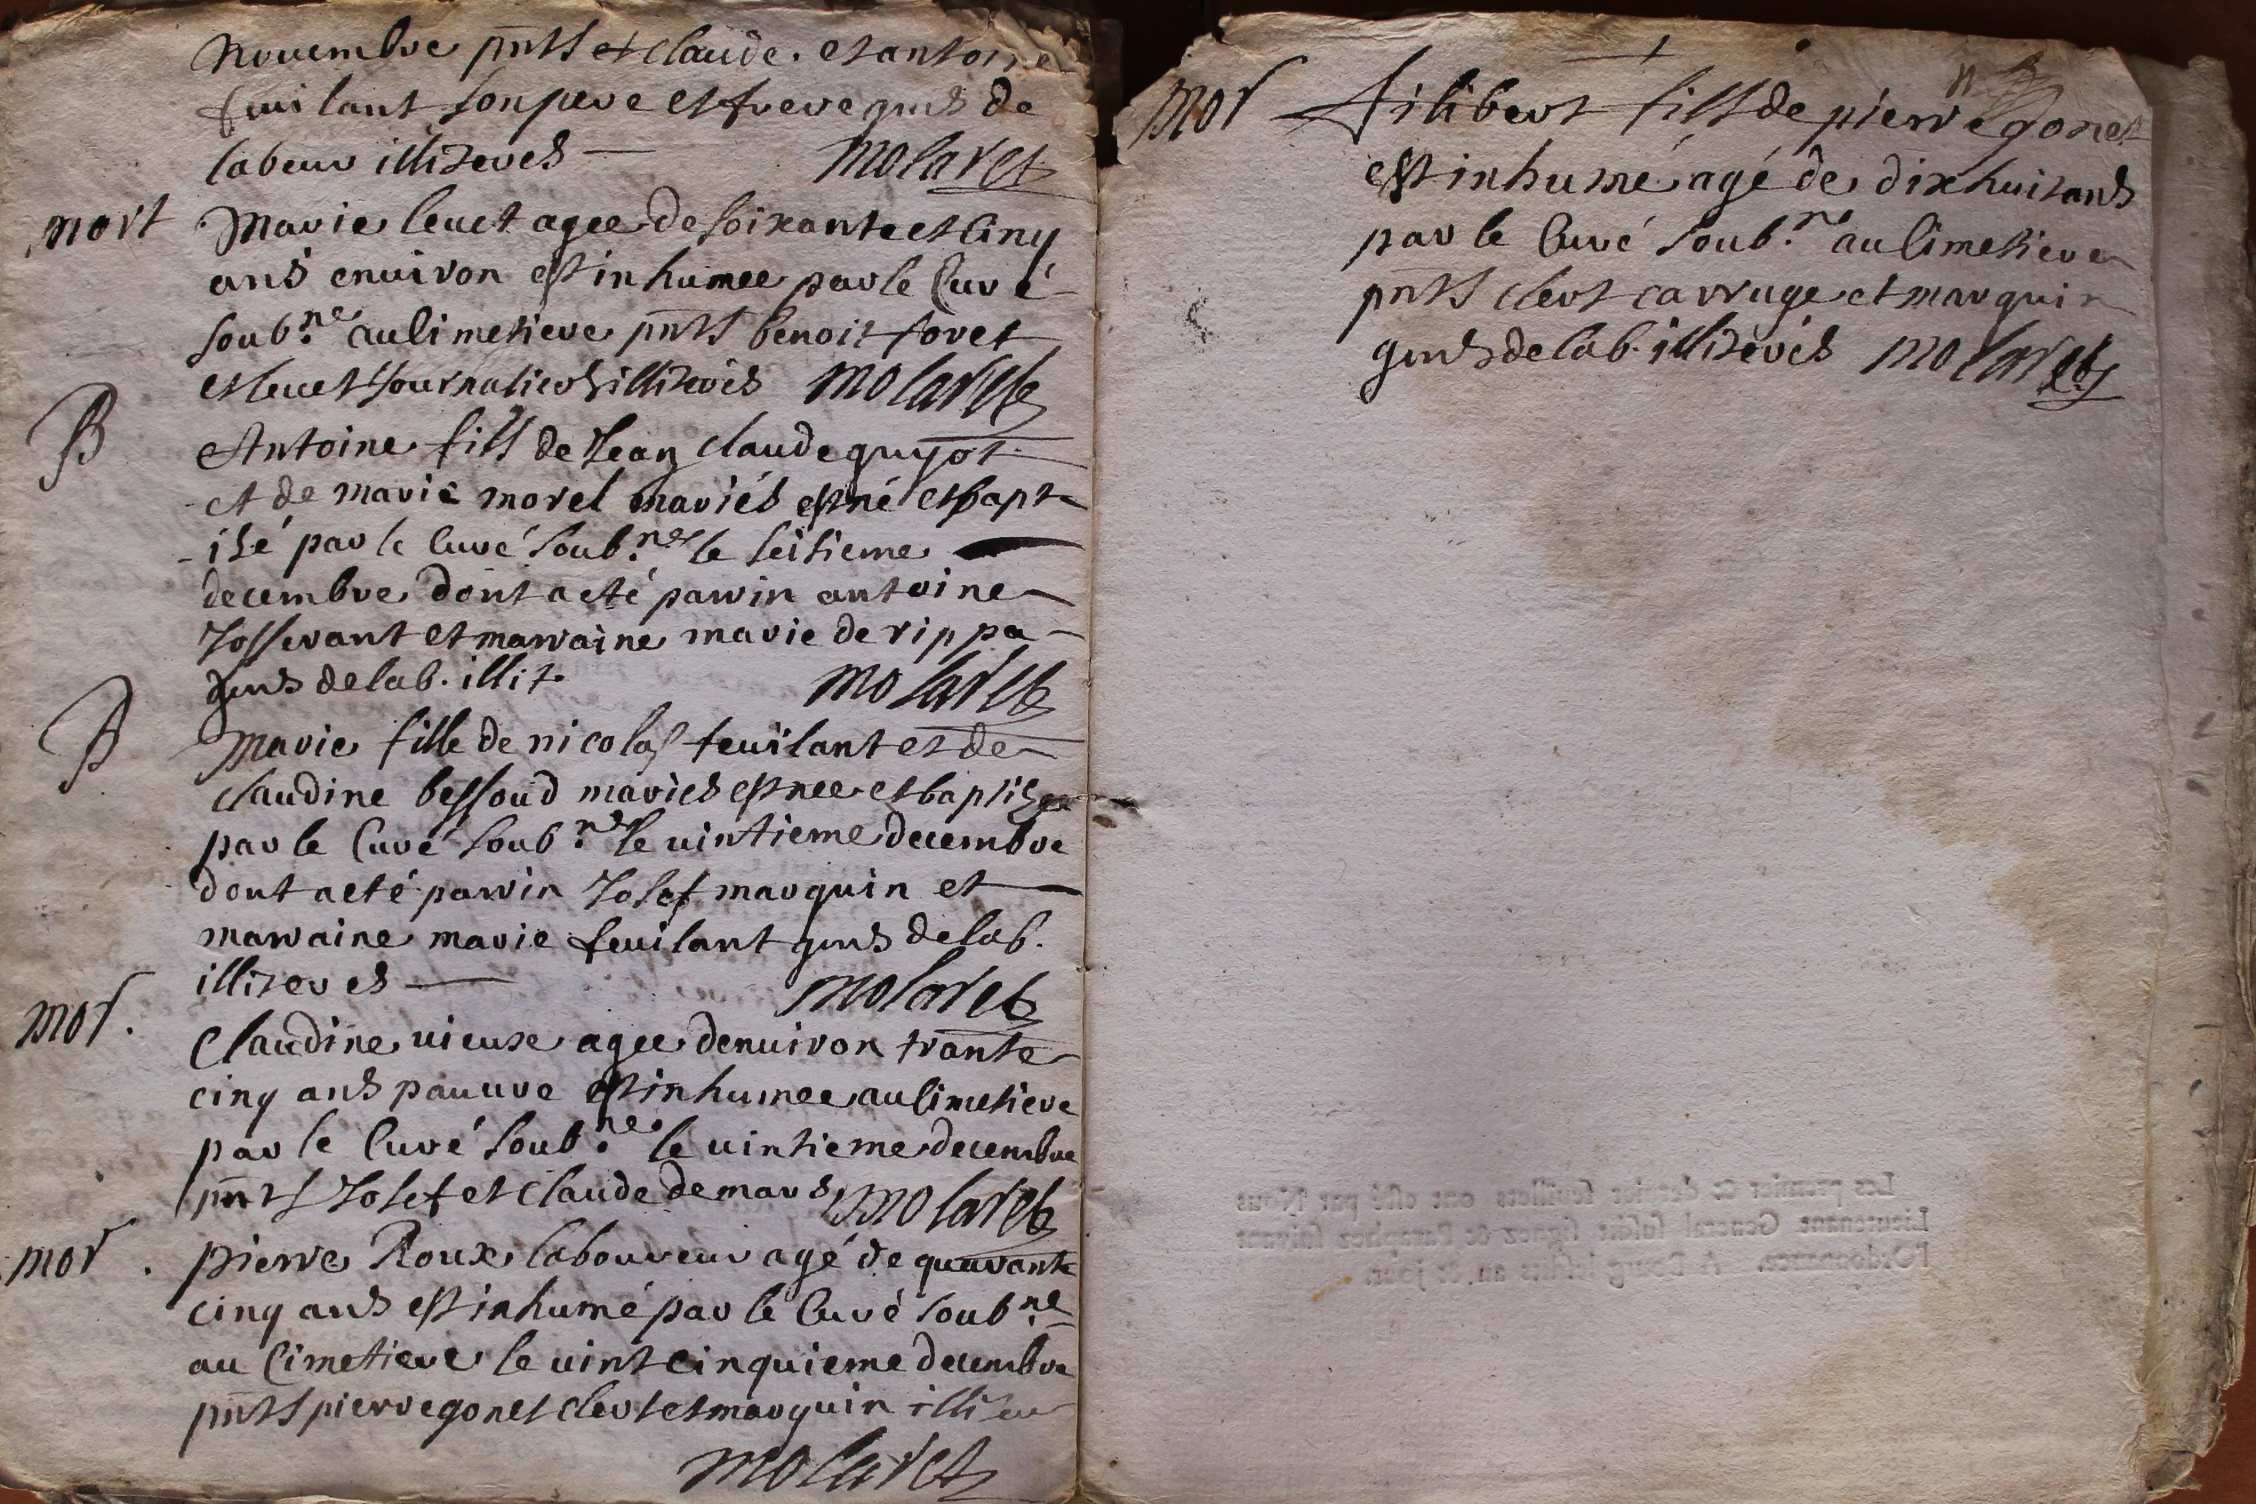 nouembre pnts et claude. et antoine
feuilant son pere et frere gens de
labeur illiterés molaret
mort
Marie leuet agee de soixante et cinq
ans enuiron est inhumee par le Curé
soub.ne au cimetiere pnts benoit foret
et leuet journaliers illiterés molaret
B
Antoine fils de Jean claude guyot
et de marie morel mariés est né et bapt
isé par le Curé soub.ne le seisieme
decembre dont acté parrin antoine
Josserant et marraine marie de rippa
gens de lab. illit. molaret
B
Marie fille de nicolas feuilant et de
claudine bessoud mariés est nee et baptisee
par le Curé soub.ne le uintieme decembre
dont acté parrin Josef marguin et
marraine marie feuilant gens de lab.
illiterés molaret
mor.
Claudine uieuxe agee denuiron trante
cinq ans pauure est inhumee au cimetiere
par le Curé soub.ne le uintieme decembre
pnts Josef et claude demars molaret
mor.
pierre Roux laboureur agé de quarante
cinq ans est inhumé par le Curé soub.ne
au Cimetiere le uint cinquieme decembre
pnts pierre gonet clert et marguin illiter
molaret
mor
filibert fils de pierre gonet
est inhumé agé de dixhuit ans
par le Curé soub.ne au cimetiere
pnts clert carruge et marguin
gens de lab. illiterés molaret
Les premier & dernier feuillets ont esté par Nous
Lieutenant General susdit signez & Paraphez suivant
l'Ordonnance. A Bourg lesdits an & jour.